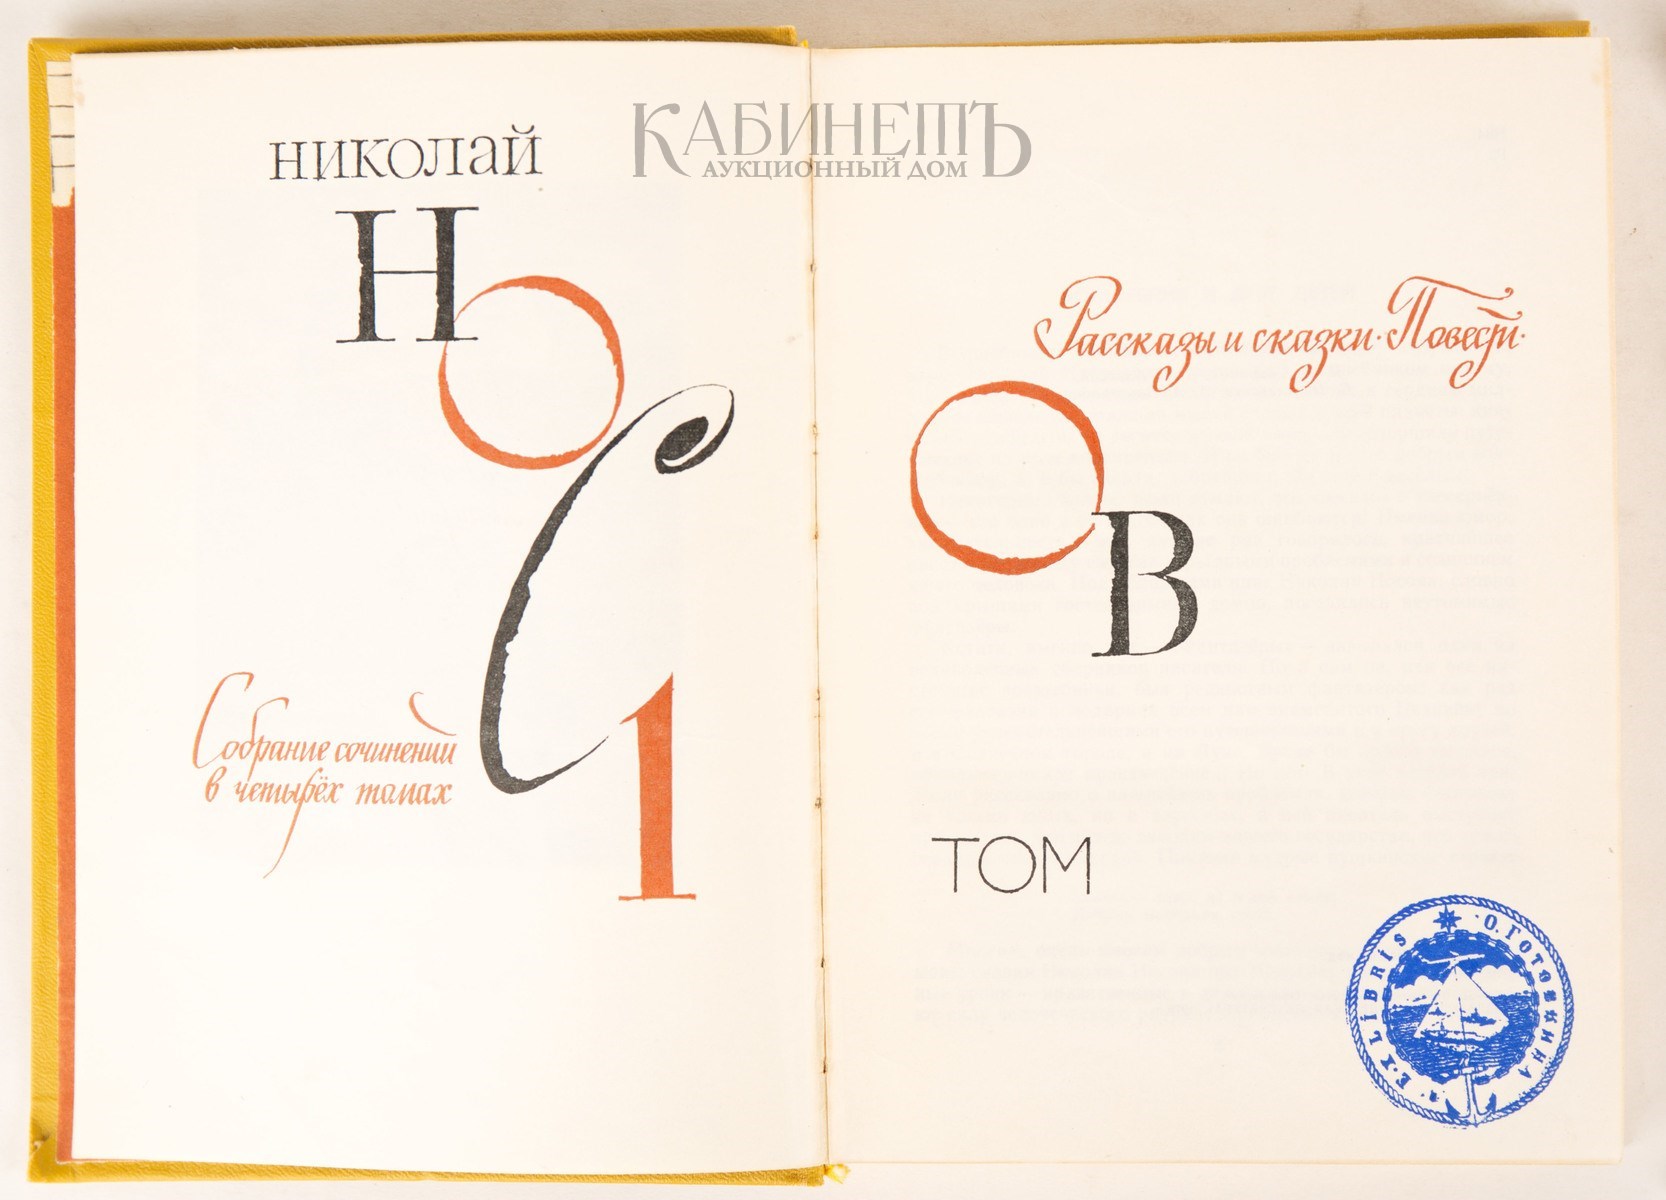 КАБИНЕТЪ
АУКЦИОННЫЙ ДОМ
НИКОЛАЙ
НОСОВ
Собрание сочинений
в четырёх томах
1
ТОМ
Рассказы и сказки·Повести·
EX LIBRIS · О. ГОТОВКИНА